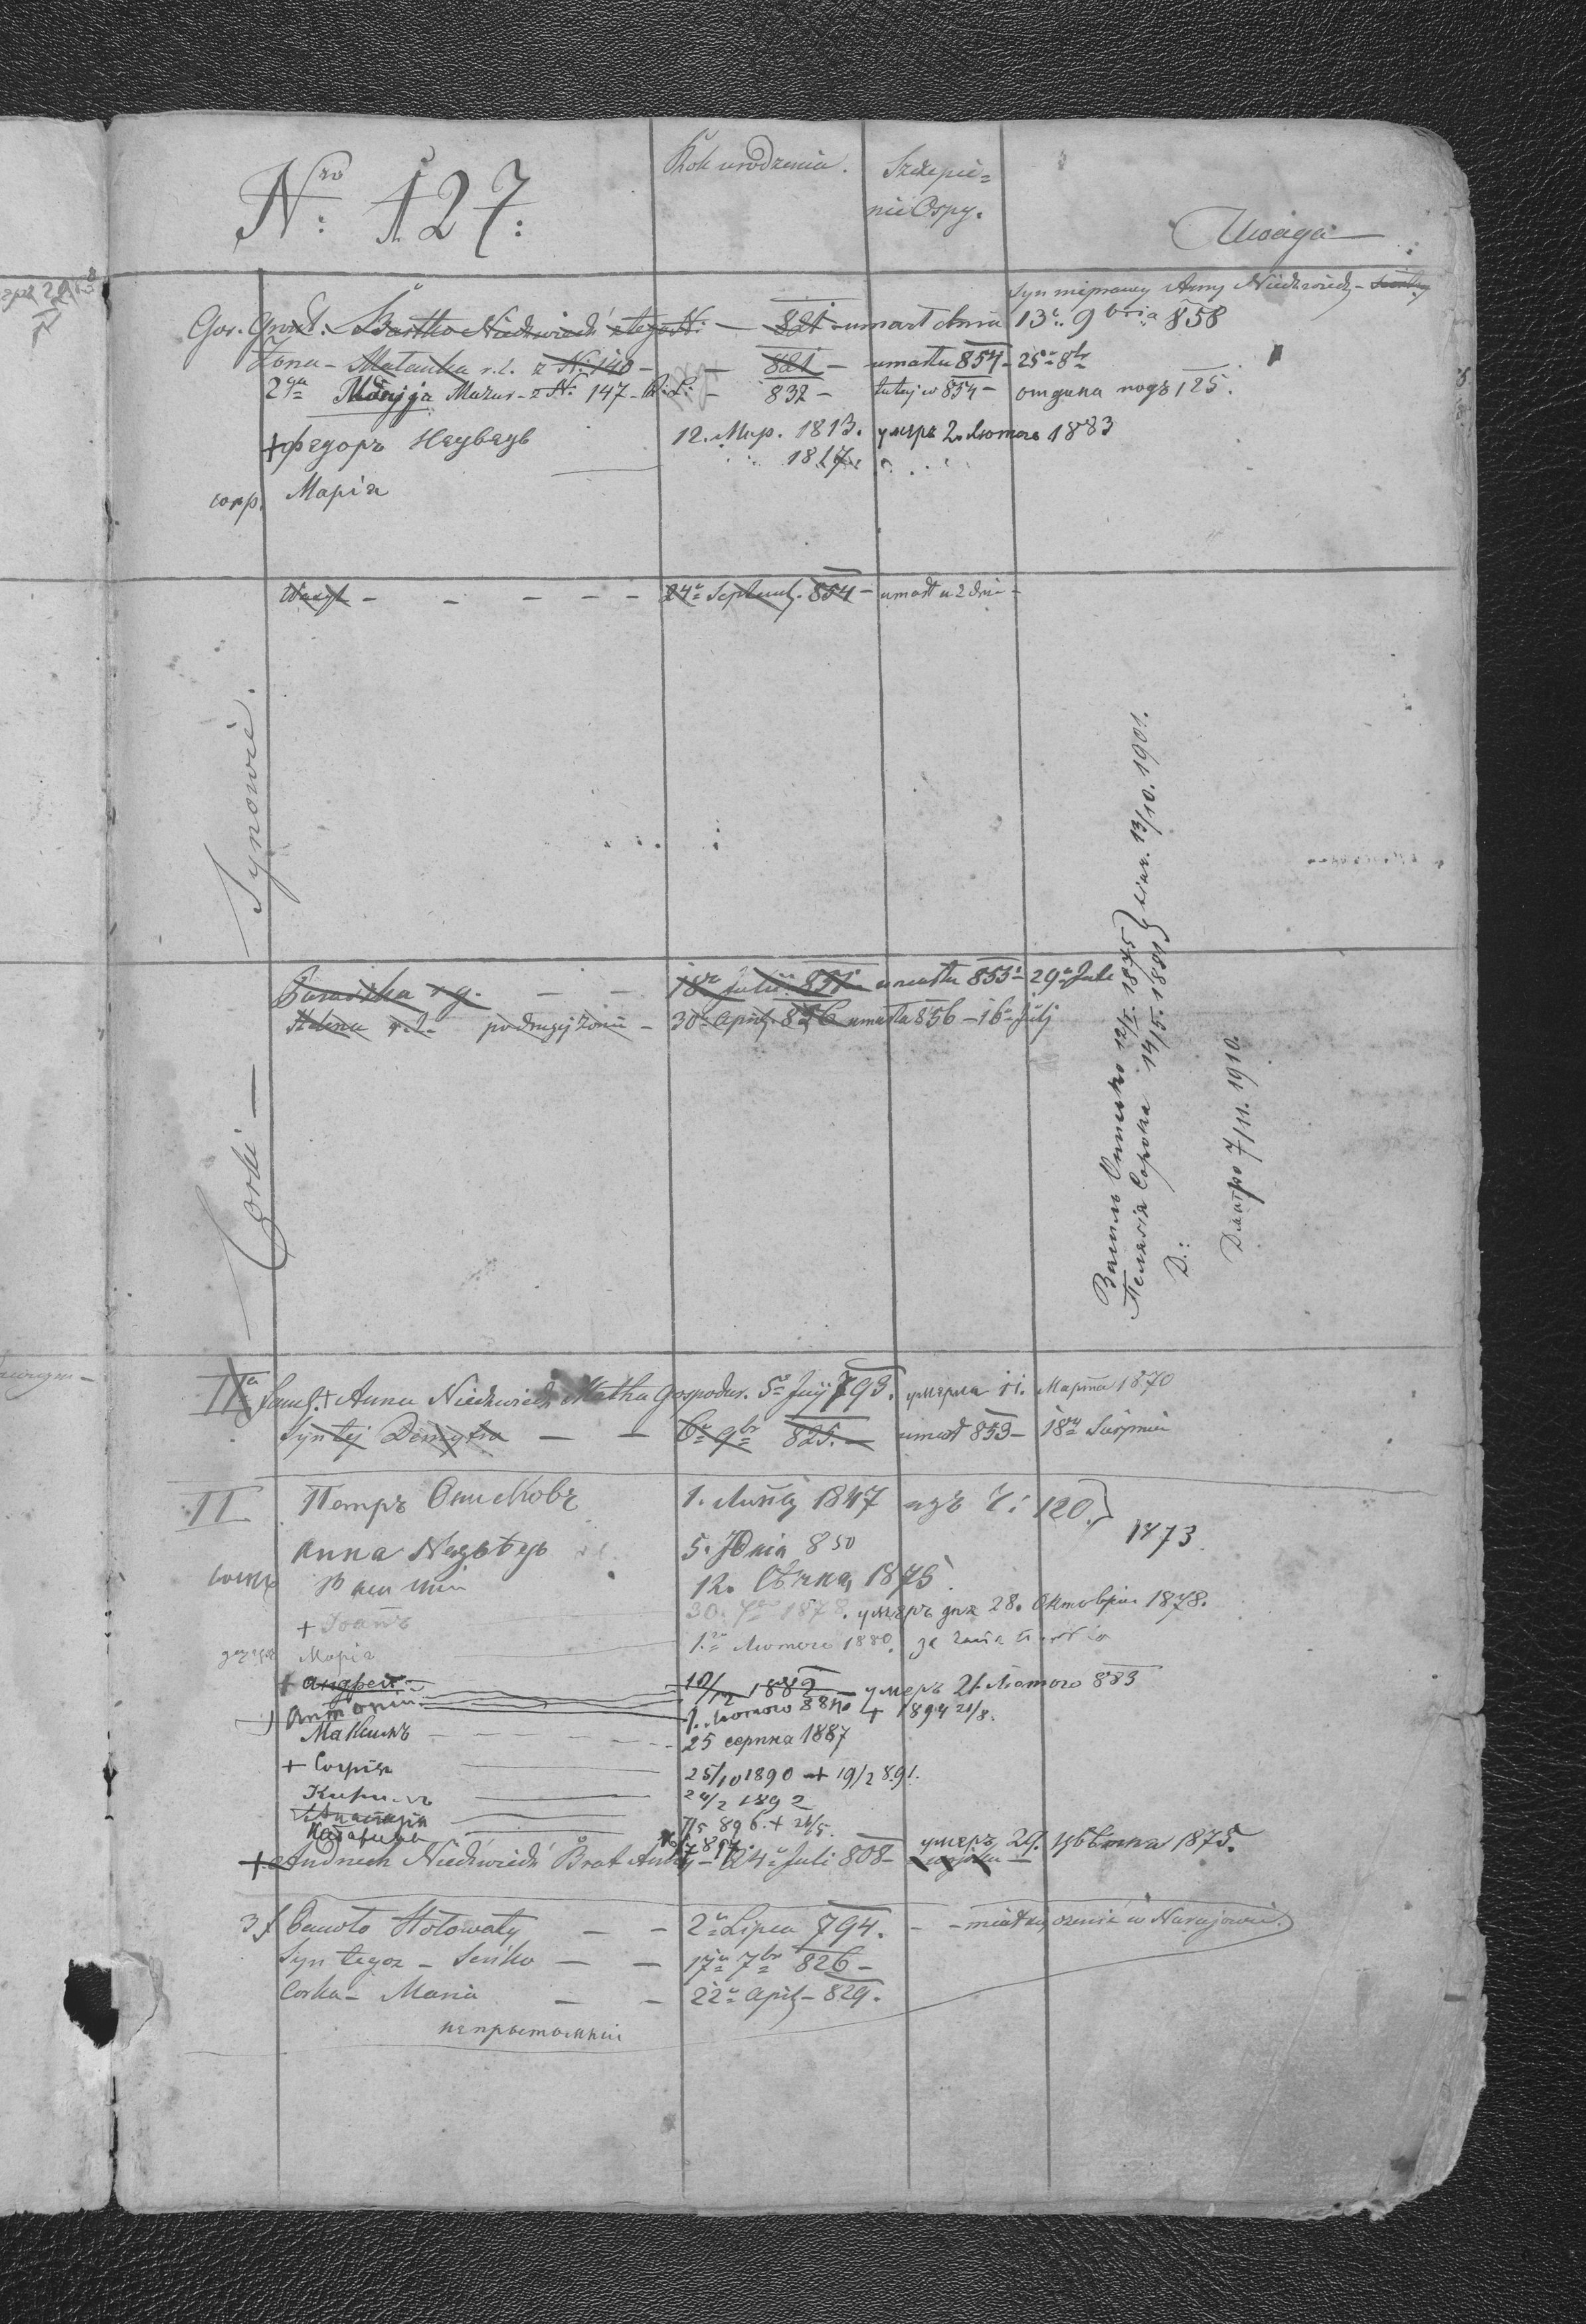 Nro: 127:
Rok urodzenia.
Szczepie=
nie Ospy.
Uwaga
syn nieprawy Anny Niedzwiedz
Gos. Grunt. Bartko Niedzwiedź z tego N: — 821 — umarł dnia 13o 9bria 858
Żona — Malanka r. l. z N: 140 — — 821 — umarła 854 — 25o 8br
2ga Maryja Mazur — z N: 147 — R: L: — 832 — tutej w 854 — отдана подъ 125.
+ Федоръ Недведь 12. Мар. 1813. умеръ 2. Лютого 1883
1817
Марія
Synowie.
Wasyl — — — — — 24o Septemb. 854 — umarł w 2 dni —
Córki —
Paraszka r. g. — — 18o Julii 851 — umarła 853 — 29o Juli
Helena r. l. po drugiej żonie — 30o April 856 umarła 856 — 16o Julj
Василь Ониско 12/1. 1875
Пелагія Сорока 14/5. 1881 } вѣн. 13/10. 1901.
Д.:
Дмитро 7/11. 1910.
IIa Famil. + Anna Niedzwiedz Matka Gospodar. 5o Juij 793. умерла 11. Марта 1870
Syn tej Demytro — — 6o 9br 825. — umarł 853 — 18go Sierpnia
II Петръ Онисковъ 1. Липця 1847 изъ Ч: 120. }
1873
Анна Недвѣдь 5. Юнія 850
Василій 12. Сѣчня 1875
+ Іоанъ 30. 7br 1878. умеръ дня 28. Октобрія 1878.
Марія 1. Лютого 1880.
+ Андрей — 10/12 1882 — умеръ 21 Лютого 883
Антоній 1. Лютого 88 + 1894 21/8.
Максимъ — — — — 25 серпня 1887
+ Софія 25/10 1890 + 19/2 891.
24/2 1892
Анастазія 7/5 896. + 21/5.
Катарина 897.
+ Andruch Niedzwiedź Brat Anny — 24o Juli 808 — умеръ 29. Цвѣтня 1875.
3f Hołowaty — — 2o Lipca 794. — — miał się ożenić w Narajowie.
Syn tegoz — Seńko — — 17o 7br 826 —
Corka — Maria — — 22o April — 829.
непрытомній